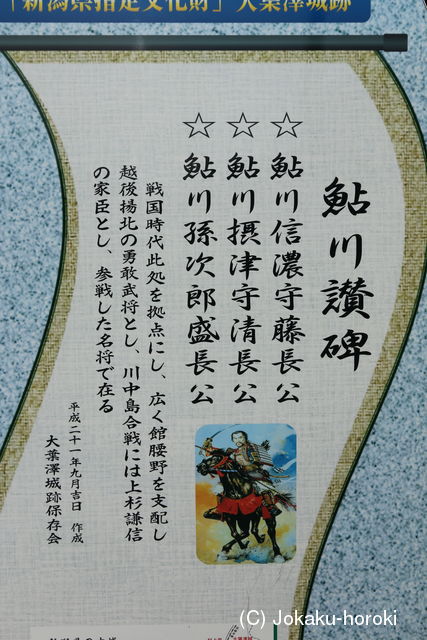 「新潟県指定文化財」大葉澤城跡
鮎川讃碑
☆鮎川信濃守藤長公
☆鮎川摂津守清長公
☆鮎川孫次郎盛長公
戦国時代此処を拠点にし、広く館腰野を支配し
越後揚北の勇敢武将とし、川中島合戦には上杉謙信
の家臣とし、参戦した名将で在る
平成二十一年九月吉日 作成
大葉澤城跡保存会
(C) Jokaku-horoki